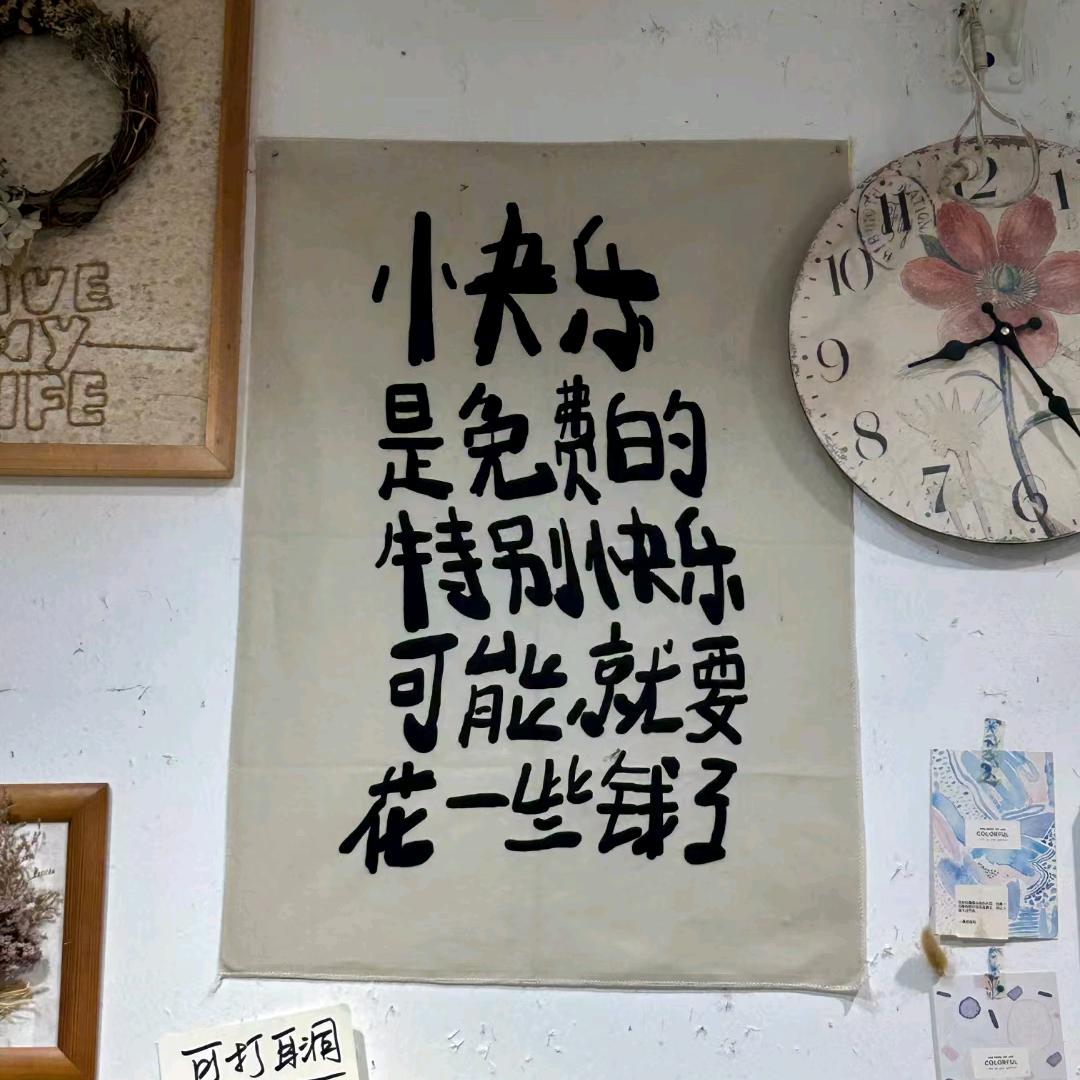 快乐
是免费的
特别快乐
可能就要
花一些钱了
LIVE
MY
LIFE
12
1
11
10
9
8
7
6
COLORFUL
COLORFUL
可打耳洞